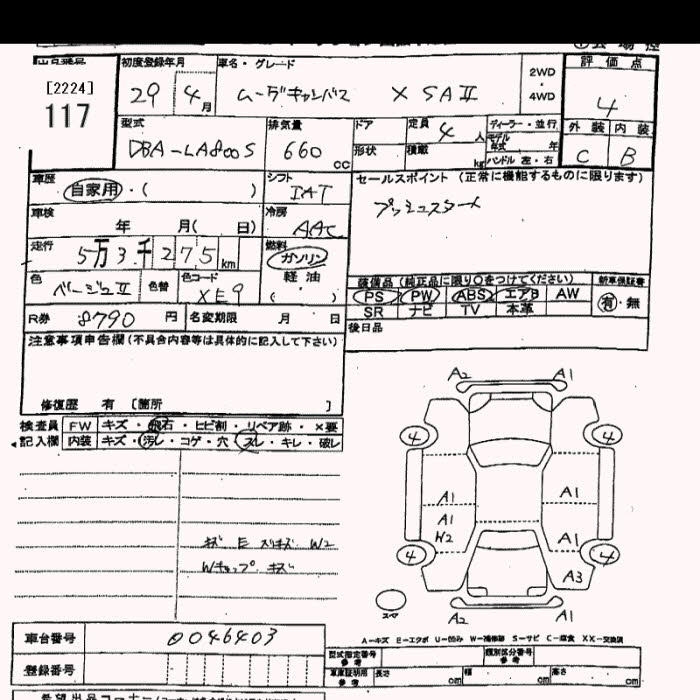 [2224]
117
初度登録年月
29 4月
車名・グレード
ムーヴキャンバス X SAⅡ
2WD
・
4WD
評価点
4
外装 内装
C B
型式
DBA-LA800S
排気量
660 cc
ドア
形状
定員 4 人
積載 kg
ディーラー・並行
モデル
年式 年
ハンドル 左・右
車歴
自家用・( )
シフト
IAT
セールスポイント (正常に機能するものに限ります)
プッシュスタート
車検
年 月( 日)
冷房
AAC
走行
5万3千275km
燃料
ガソリン
軽油
( )
色
ベージュⅡ
色替
色コード
XE9
装備品 (純正品に限り○をつけてください)
PS PW ABS エアB AW
SR ナビ TV 本革
新車保証書
有・無
後日品
R券 8790 円
名変期限 月 日
注意事項申告欄(不具合内容等は具体的に記入して下さい)
修復歴 有 [箇所 ]
検査員 FW キズ・飛石・ヒビ割・リペア跡・×要
記入欄 内装 キズ・汚レ・コゲ・穴・スレ・キレ・破レ
キズ E スリキズ W2
Wチップ キズ
A2 A1
4 4
A1 A1
A1
W2 A1
4 4
A3
スペ
A2 A1
A-キズ E-エクボ U-凹み W-補修跡 S-サビ C-腐食 XX-交換済
車台番号 0046403
登録番号
型式指定番号
参考
類別区分番号
参考
車庫証明用
参考
長さ cm 幅 cm 高さ cm
希望出品コーナー